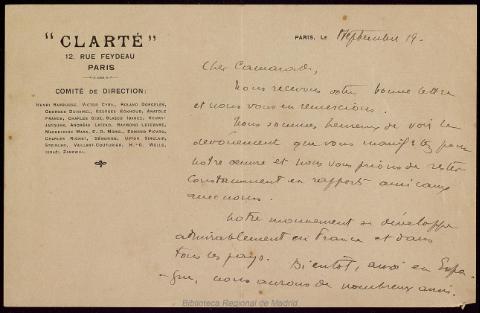 "CLARTÉ"
12, RUE FEYDEAU
PARIS
COMITÉ DE DIRECTION:
HENRI BARBUSSE, VICTOR CYRIL, ROLAND DORGELÈS,
GEORGES DUHAMEL, EDOUARD, ANATOLE
FRANCE, CHARLES GIDE, BLASCO IBANEZ,
ANDREAS LATZKO, RAYMOND LEFEBVRE,
MADELEINE MARX, E. D. MOREL, EDMOND PICARD,
CHARLES RICHET, SÉVERINE, UPTON SINCLAIR,
STEINLEN, VAILLANT-COUTURIER, H.-G. WELLS,
ISRAEL ZANGWILL
PARIS, LE Septembre 19.
Cher Camarade,
Nous recevons votre bonne lettre
et nous vous en remercions.
Nous sommes heureux de voir le
dévouement que vous manifestez pour
notre œuvre et nous vous prions de rester
constamment en rapports amicaux
avec nous.
Notre mouvement se développe
admirablement en France et dans
tous les pays. Bientôt, aussi en Espa-
gne, nous aurons de nombreux amis.
Biblioteca Regional de Madrid